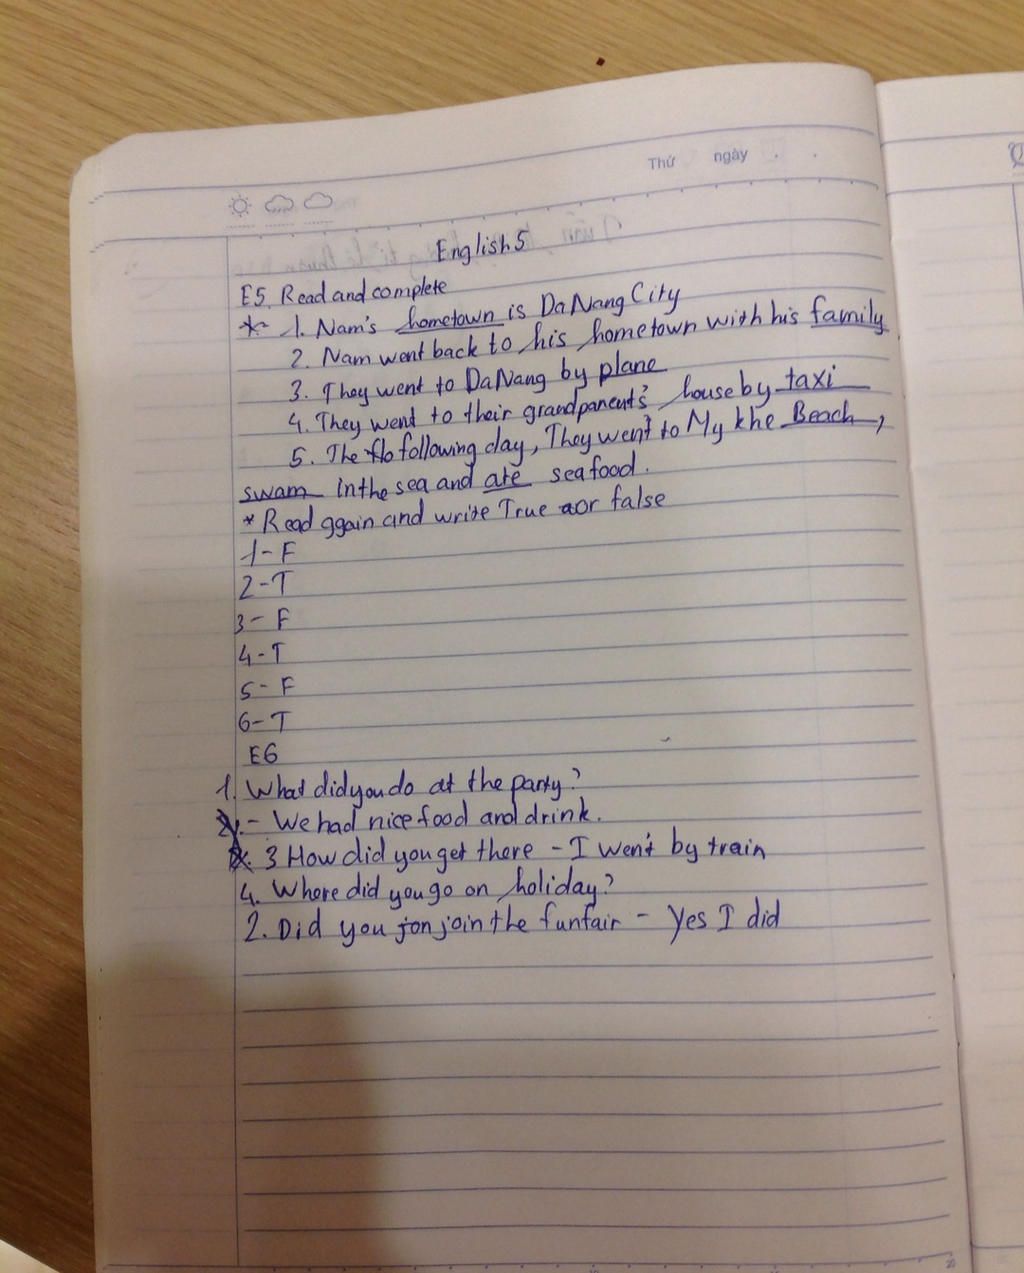 Thứ ngày . .
English 5
E5. Read and complete
* 1. Nam's hometown is Da Nang City
2. Nam went back to his hometown with his family
3. They went to Da Nang by plane
4. They went to their grandparent's house by taxi
5. The flo following day, They went to My khe Beach,
swam in the sea and ate seafood.
* Read again and write True aor false
1 - F
2 - T
3 - F
4 - T
5 - F
6 - T
E6
1. What did you do at the party?
- We had nice food and drink.
3 How did you get there - I went by train
4. Where did you go on holiday?
2. Did you jon join the funfair - Yes I did
20